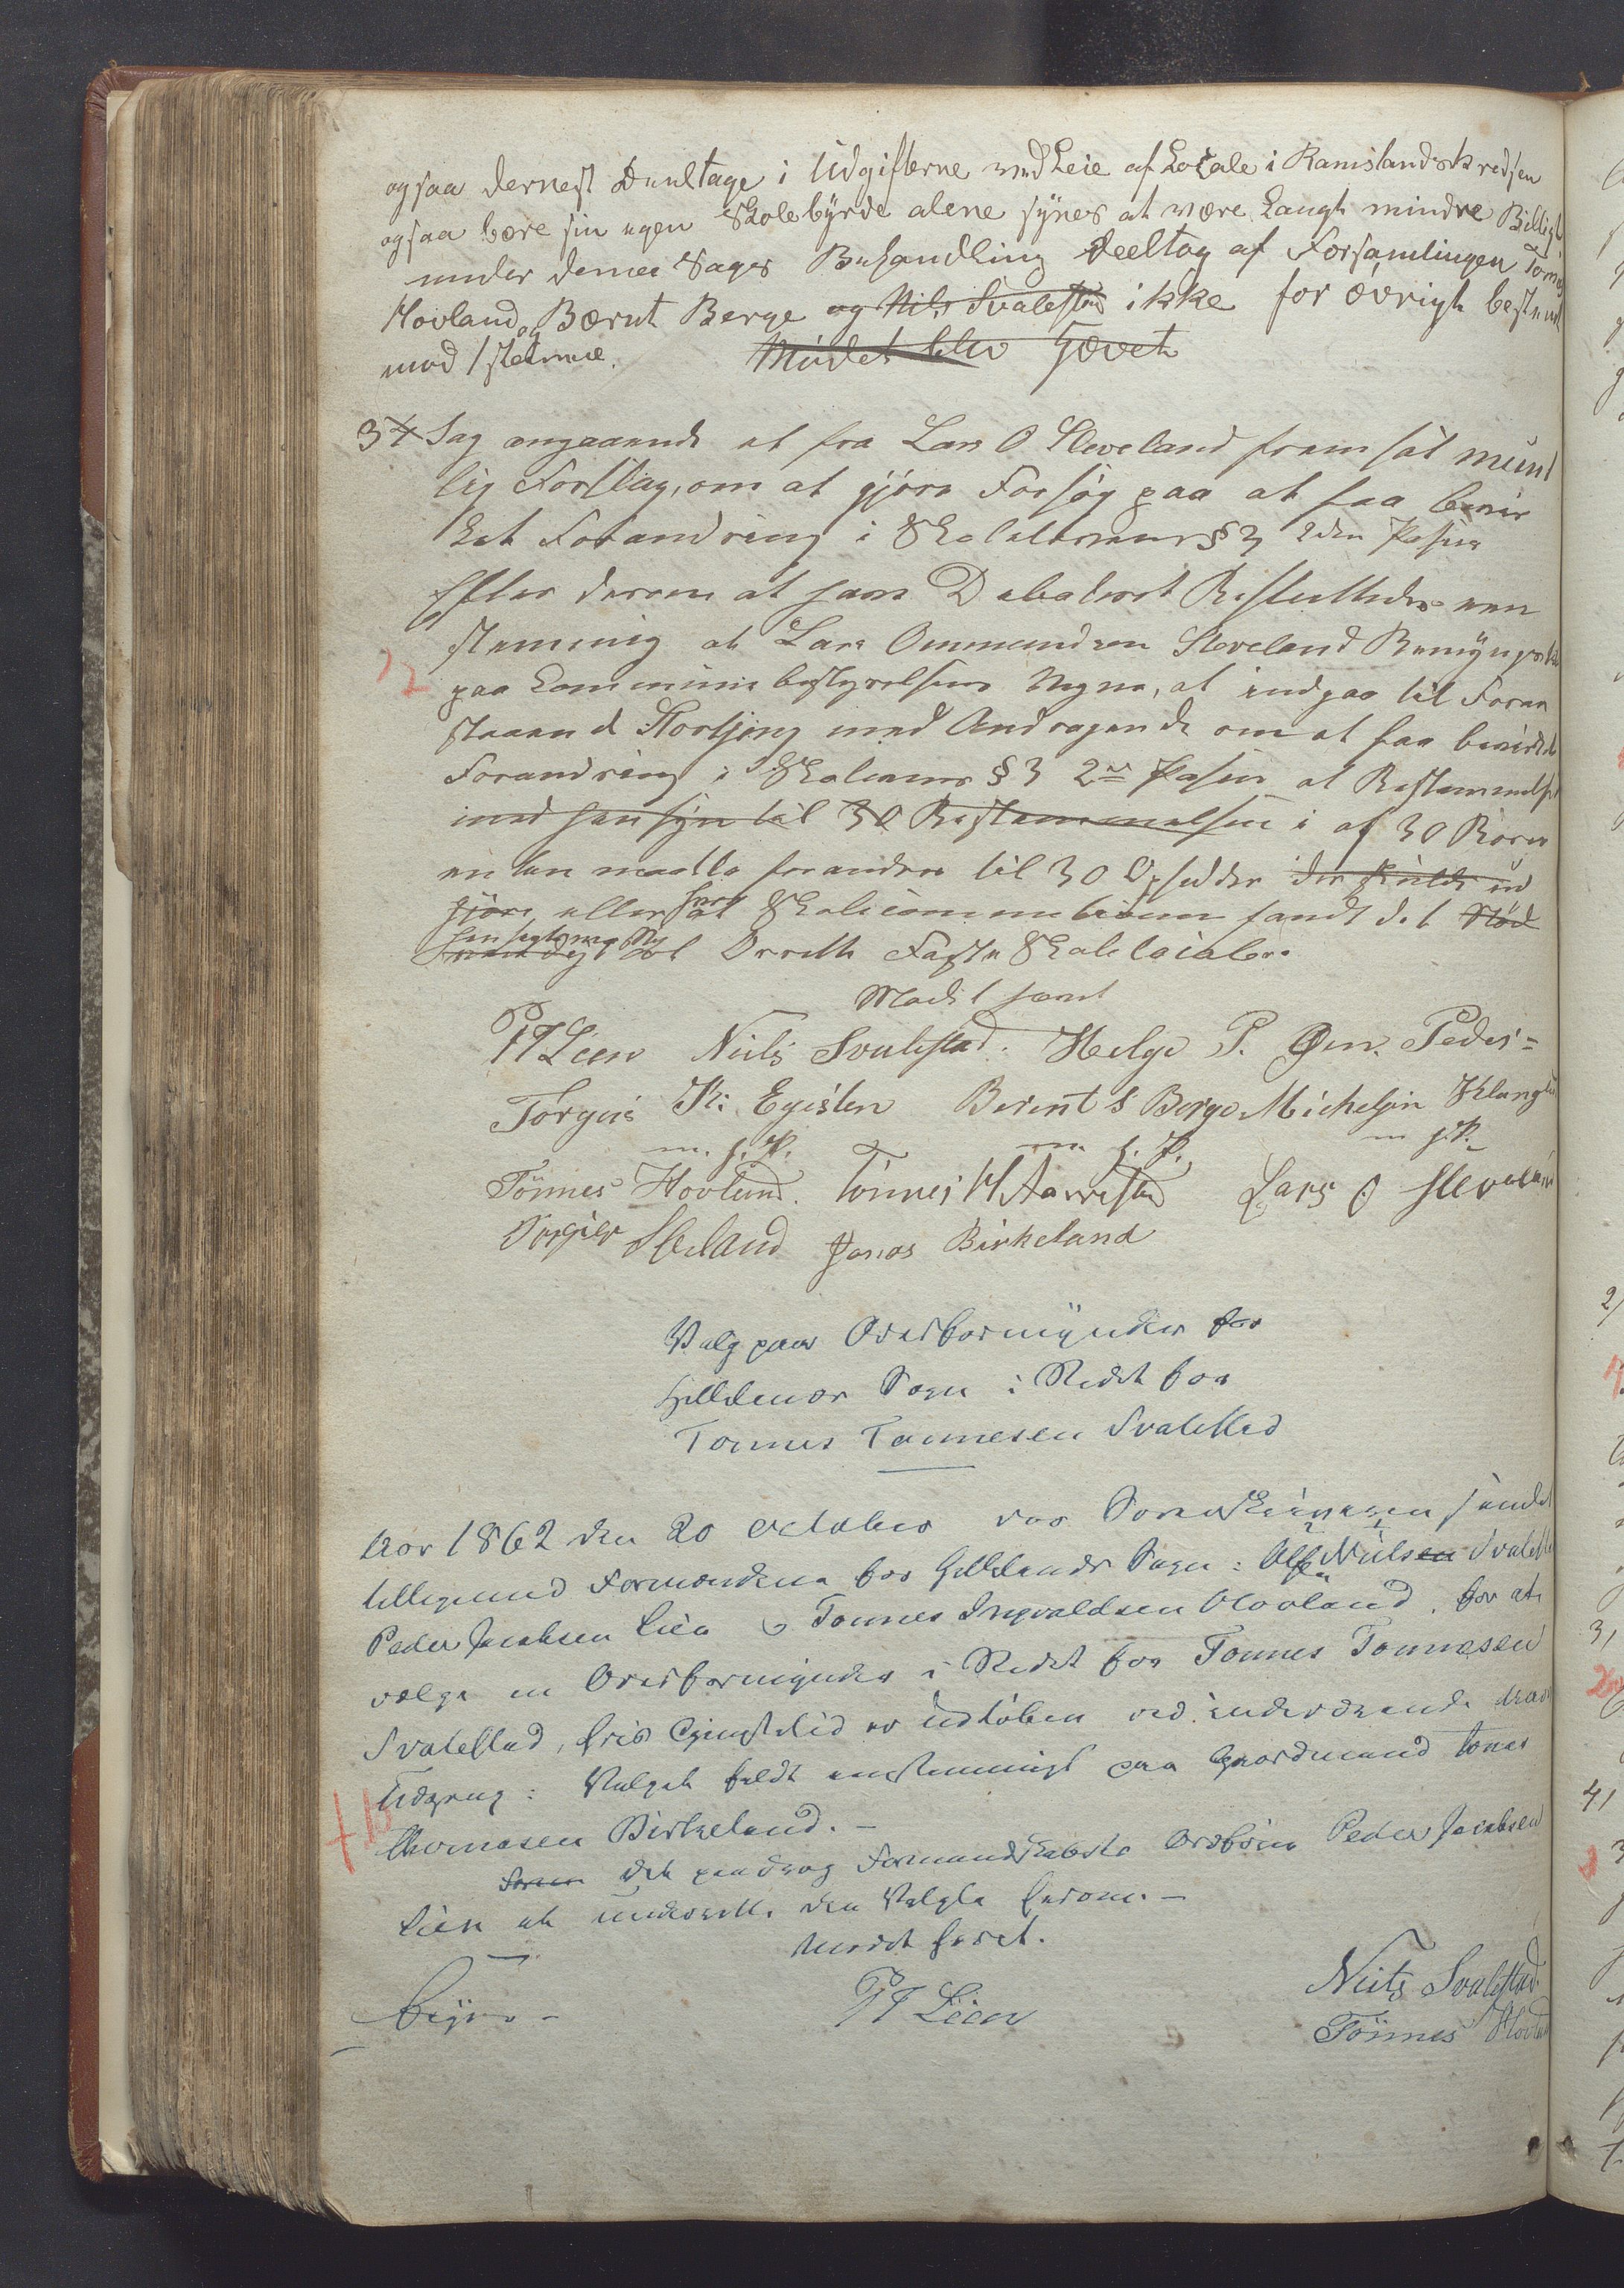 ogsaa dernest Deeltage i Udgifterne med Leie af Locale i Ramslandskredsen
ogsaa bære sin egen Skolebyrde alene synes at være Langt mindre Billigt
under denne Sages Behandling deeltog af Forsamlingen Tönnes
Hovland og Bærnt Berge og Nils Svalestad ikke for øvrigt bestemt
mod 1 stemme. Mödet blev Hævet
3 Sag angaaende et fra Lars O Sleveland fremsat mund
lig Forslag, om at gjöre Forsög paa at faa bevir
ket Forandring i Skoleloven § 3 2den Passus
Efter derom at have Debateret Besluttedes een
stemmig at Lars Ommundsen Sleveland Bemyndiges
paa Communebestyrelsens Vegne, at indgaa til Foran
staaend Storthing med Andragende om at faa bevirket
Forandring i Skoleloven § 3 2den Passus at Bestemmelsen
med hensyn til 30 Bestemmelsen i af 30 Börn
enten maatte forandres til 30 Opsidder der skulde ud
gjöre, eller hvor Skolecommissionen fandt det Nöd
hensigtsmæssig at Oprette Faste Skolelocaler.
Mødet hævet
PJ Lien Niels Svalestad. Helge P. Øen. Peder
Torgeir K: Egeslen Berent S Berge Michel Klungland
m. f. P. m. f. P. m f. P.
Tönnes Hovland. Tönnes H Aarrestad Lars O Sleveland
Torgier Heland Jonas Birkeland
Valg paa Overformynder for
Hellelands Sogn i Stedet for
Tønnes Tønnesen Svalestad
Aar 1862 den 20 October var Sorenskriveren samlet
tilligemed Formændene for Hellelands Sogn: Nils Svalestad
Peder Jacobsen Lien og Tønnes Ingvaldsen Hovland, for at
vælge en Overformynder i Stedet for Tønnes Tønnesen
Svalestad, hvis Tjenestetid er udløben ved indeværende Aars
Udgang: Valget faldt eenstemmigt paa Gaardmand Jonas
Thomasen Birkeland.
Det paadrog Formandskabets Ordfører Peder Jacobsen
Lien at underrette den Valgte herom.
Mødet hævet.
PJ Lien Niels Svalestad
Tönnes Hovland